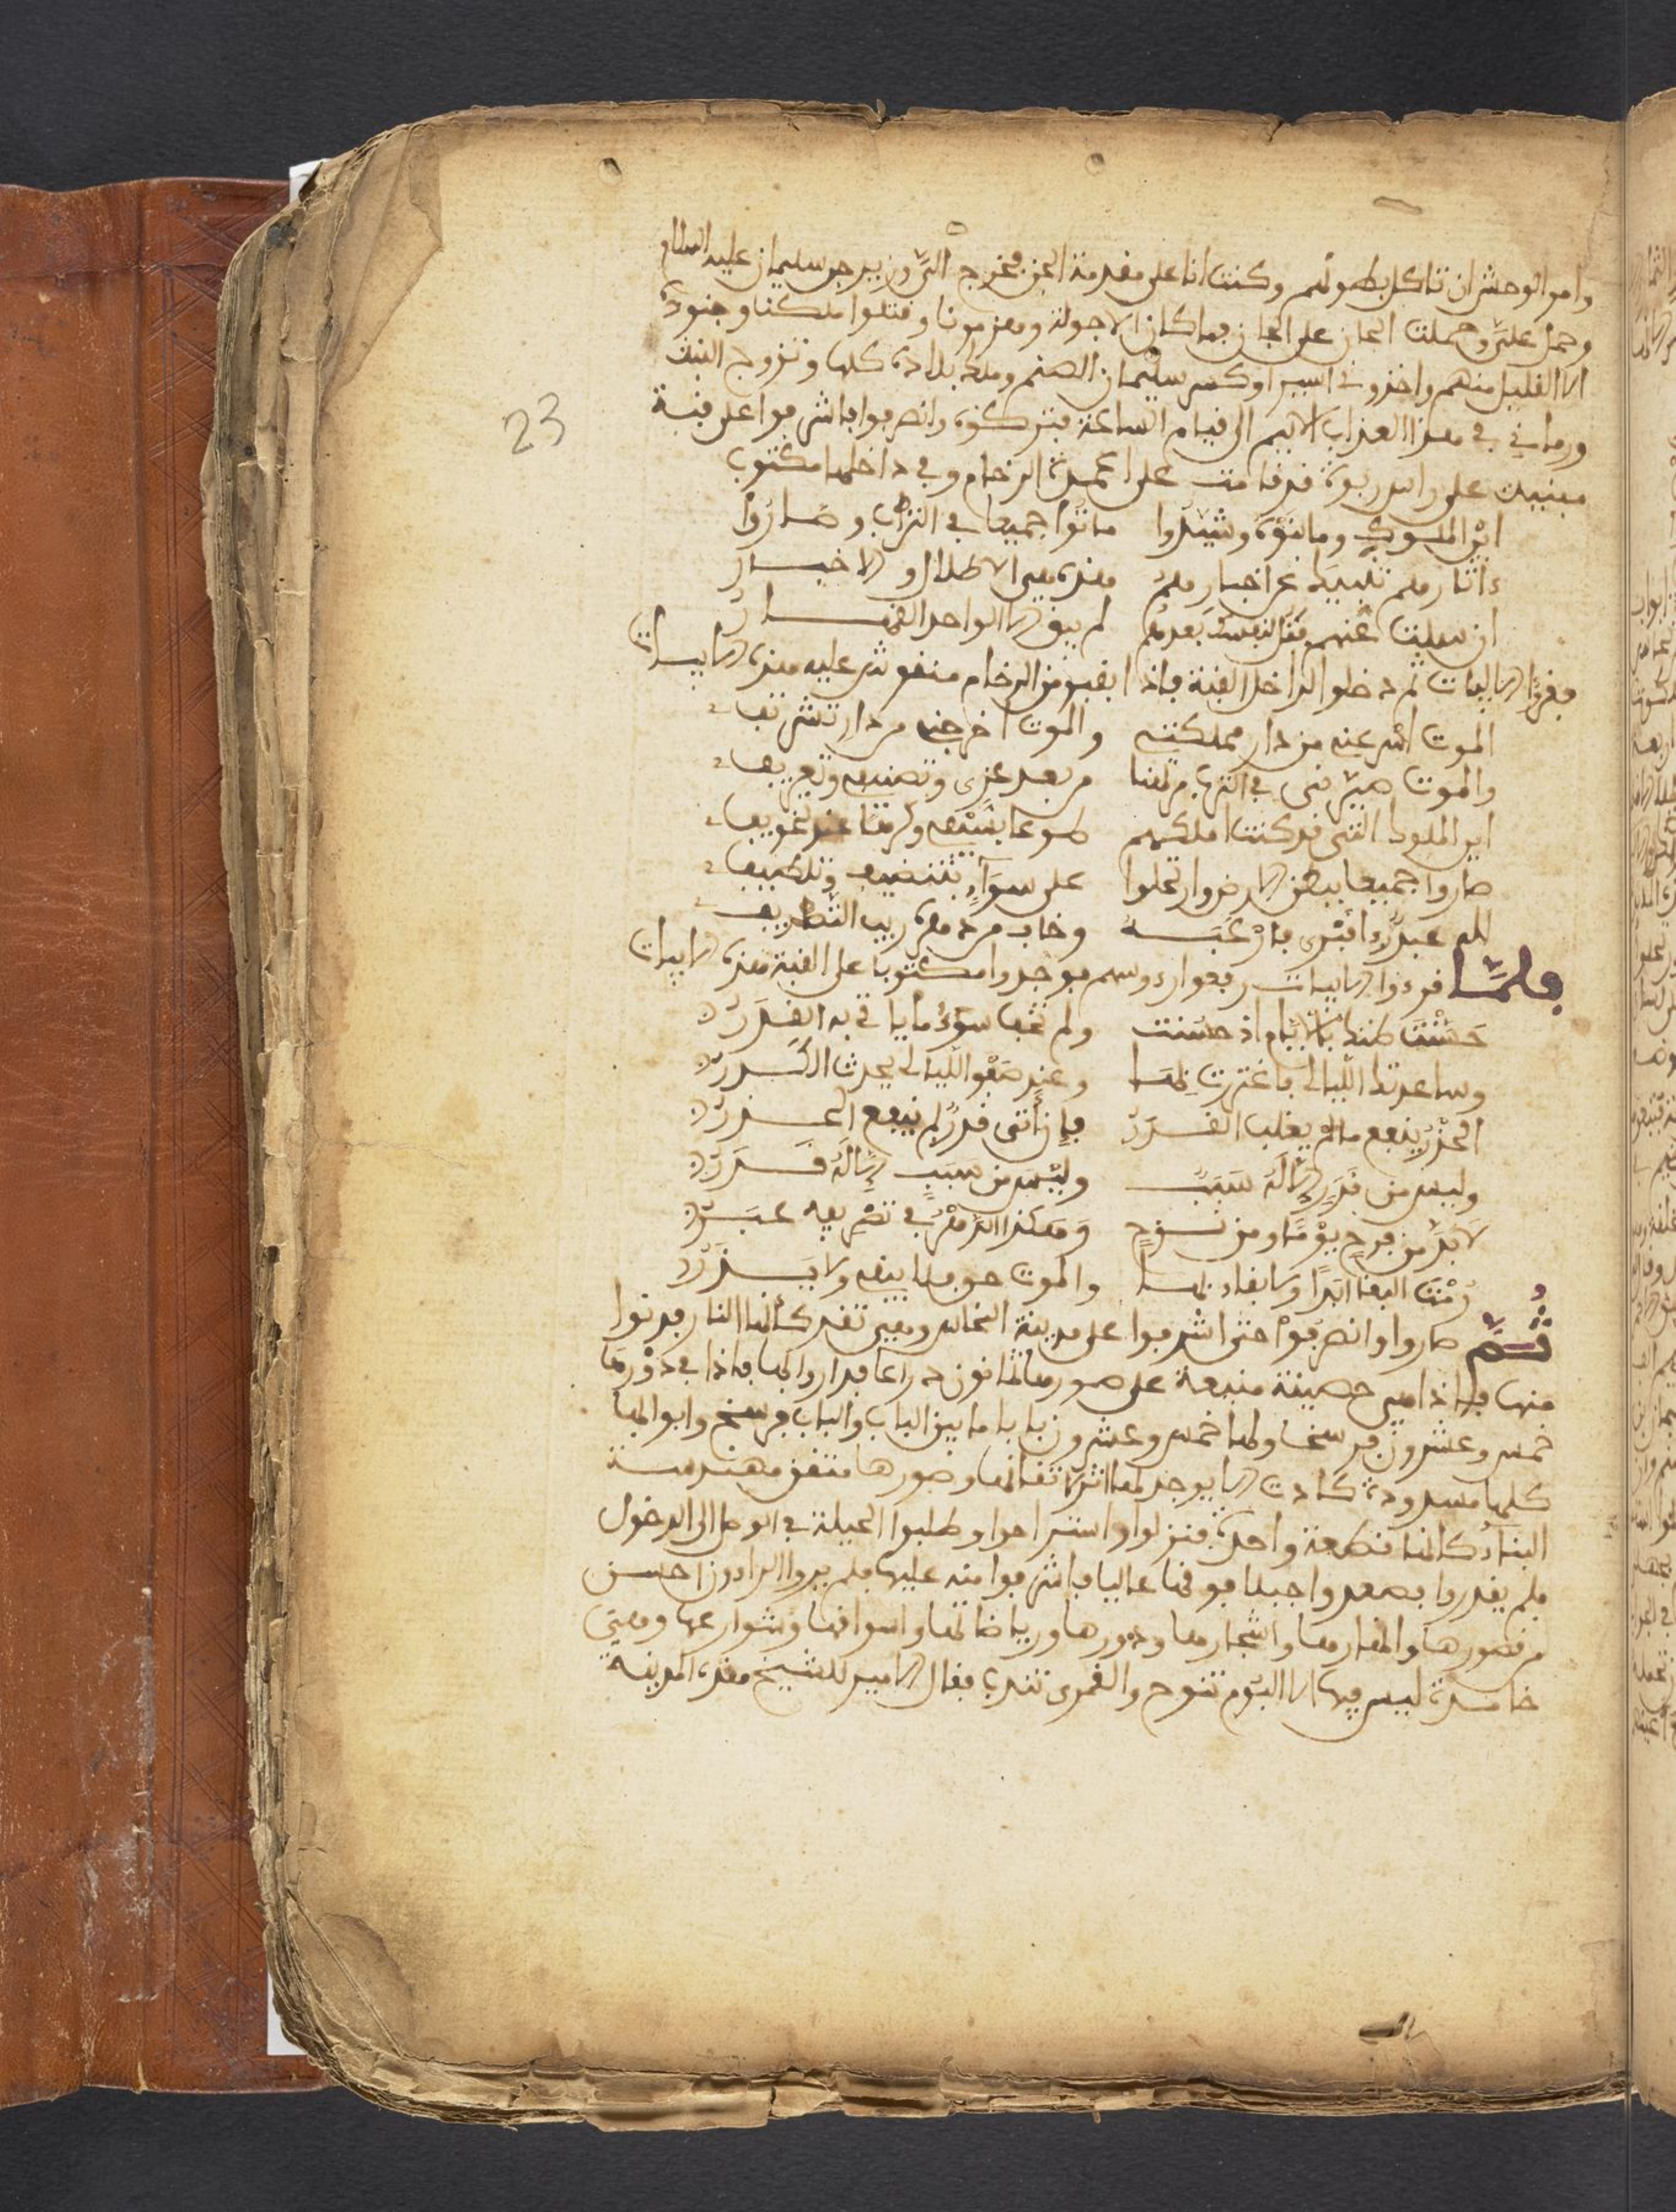 وامر الوحش ان تاكل بطونهم وكنت انا على مقدمة الجن فخرج الي سليمان عليه السلام
وحمل علي وحملت الجان على الجان فما كان الا جولة وهزمونا وقتلوا ملكنا وجنوده
الا القليل منهم واخذوني اسيرا وكسر سليمان الصنم وملك بلاده كلها وتزوج البنت
ورماني في هذا العذاب الاليم الى قيام الساعة فتركوه وانصرفوا فاشرفوا على قبة
مبنية على راس ربوة قد قامت على اعمدة الرخام وفي داخلها مكتوب
اين الملوك وما بنوه وشيدوا ماتوا جميعا في التراب وصاروا
ءاثارهم تنبيك عن اخبارهم هذه هي الاطلال والاخبار
ان سالت عنهم بعدهم لم يبق الا الواحد القهار
فقرا الابيات ثم دخلوا الى داخل القبة فاذا بقبر من الرخام منقوش عليه هذه الابيات
الموت من دار مملكتي والموت اخرجني من دار تشريف
والموت صيرني في الترب مرتهنا من بعد عزي وتصنيف وتعريف
اين الملوك التي قد كنت املكهم طوعا بسيف وكرها عند تخويف
صاروا جميعا ببطن الارض وارتحلوا على سواء
لله عبد وخاب من دهره ريب التطريف
فلما قرءوا الابيات رفعوا رءوسهم فوجدوا مكتوبا على القبة هذه الابيات
حسنت ظنك بالايام اذ حسنت ولم تخف سوء ما ياتي به القدر
وساعدتك الليالي فاغتررت بها وعند صفو الليالي يحدث الكدر
الحذر ينفع ما لم يغلب القدر فان اتى قدر لم ينفع الحذر
وليس من قدر الا له سبب وليس من سبب الا له قدر
لا بد من فرح يوما ومن نوح وهكذا الدهر في تصريفه عبر
رمت البقا ابدا ولا بقاء لها والموت حق فلا يبقي ولا يذر
ثم صاروا وانصرفوا حتى اشرفوا على مدينة النحاس وهي تقد كانها النار فدنوا
منها فاذا هي حصينة منيعة على صورها ثمانون ذراعا فداروا بها فاذا في دورها
خمس وعشرون فرسخا ولها خمس وعشرون بابا ما بين الباب والباب فرسخ وابوابها
كلها مسدودة كادت لا يوجد لها اثر لاتقانها وصورها متقن مهندسة
البناء كانها قطعة واحدة فنزلوا واستراحوا وطلبوا الحيلة في الوصال الى الدخول
فلم يقدروا فصعدوا جبلا فوقها عاليا فاشرفوا منه عليها فلم يروا الراءون احسن
من قصورها وانهارها واشجارها ودورها ورياضاتها واسواقها وشوارعها وهي
خامدة ليس فيها الا البوم تنوح والقمري تندب فقال الامير للشيخ هذه المدينة
23